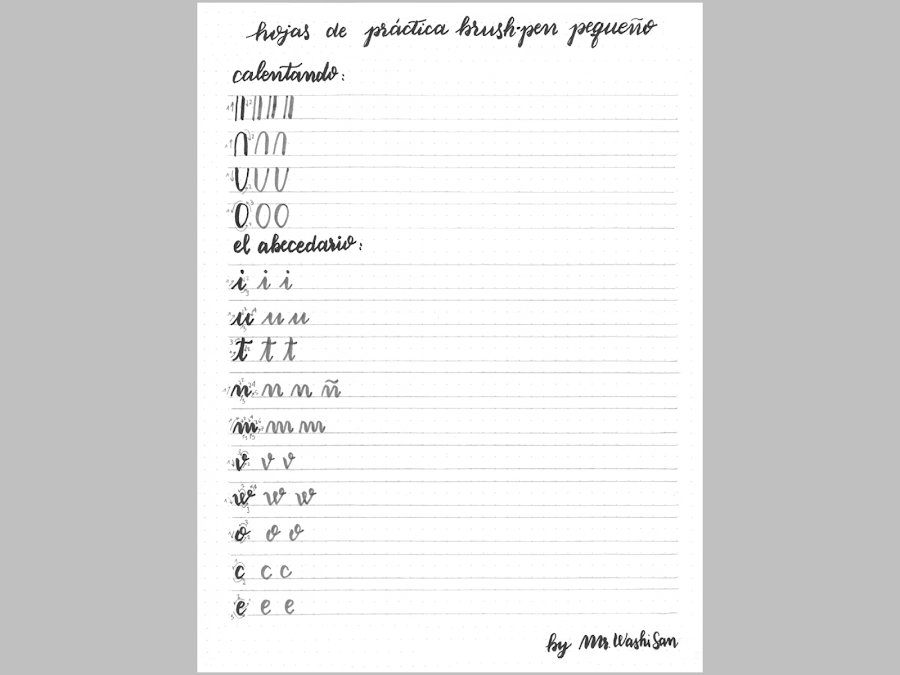 hojas de práctica brush-pen pequeño
calentando:
el abecedario:
i i i
u u u
t t t
n n n ñ
m m m
v v v
w w w
o o o
c c c
e e e
by Mr. WashiSan